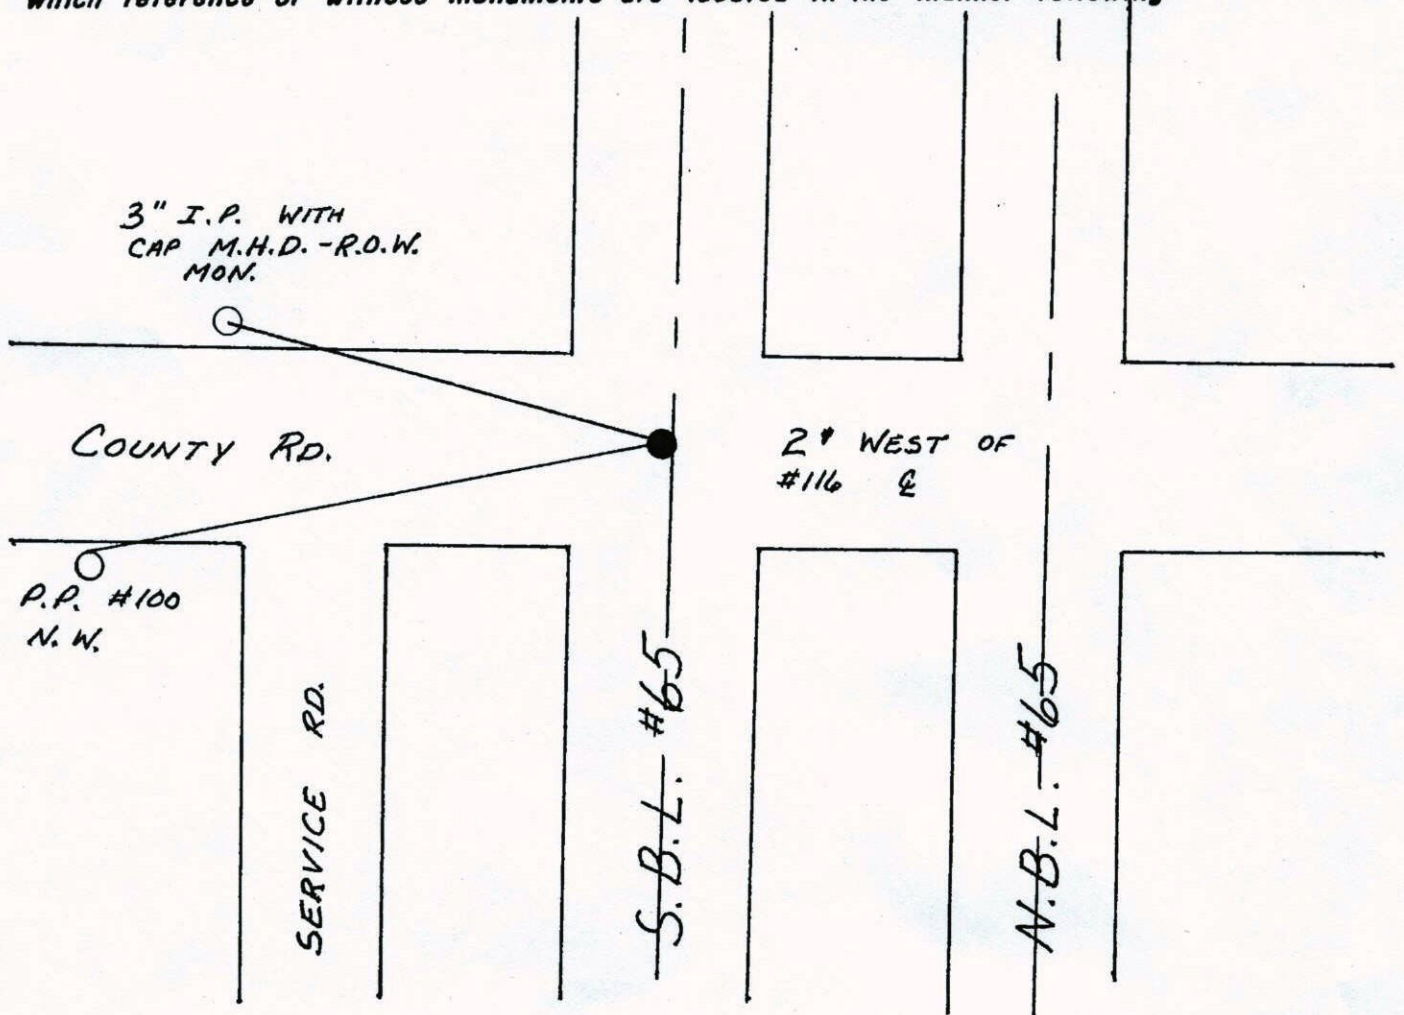 which reference or witness monuments are located in the manner following
3" I.P. WITH
CAP M.H.D. -R.O.W.
MON.
COUNTY RD.
2' WEST OF
#116 ℄
P.P. #100
N.W.
SERVICE RD.
S.B.L. #65
N.B.L. #65